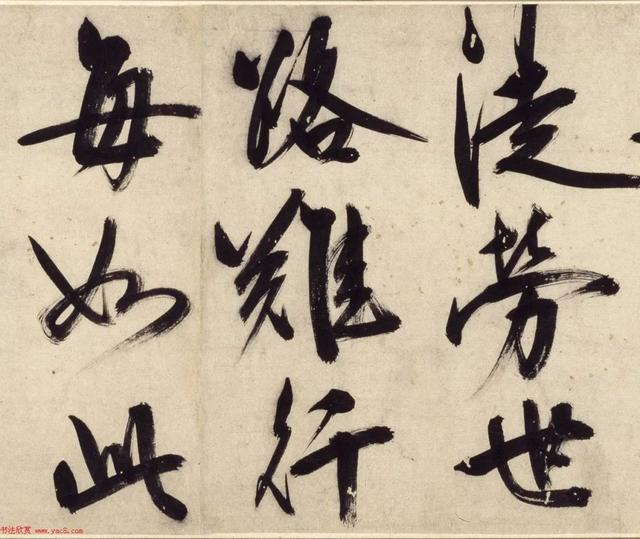 徒劳世
路難行
每如此
书法欣赏 www.yac8.com